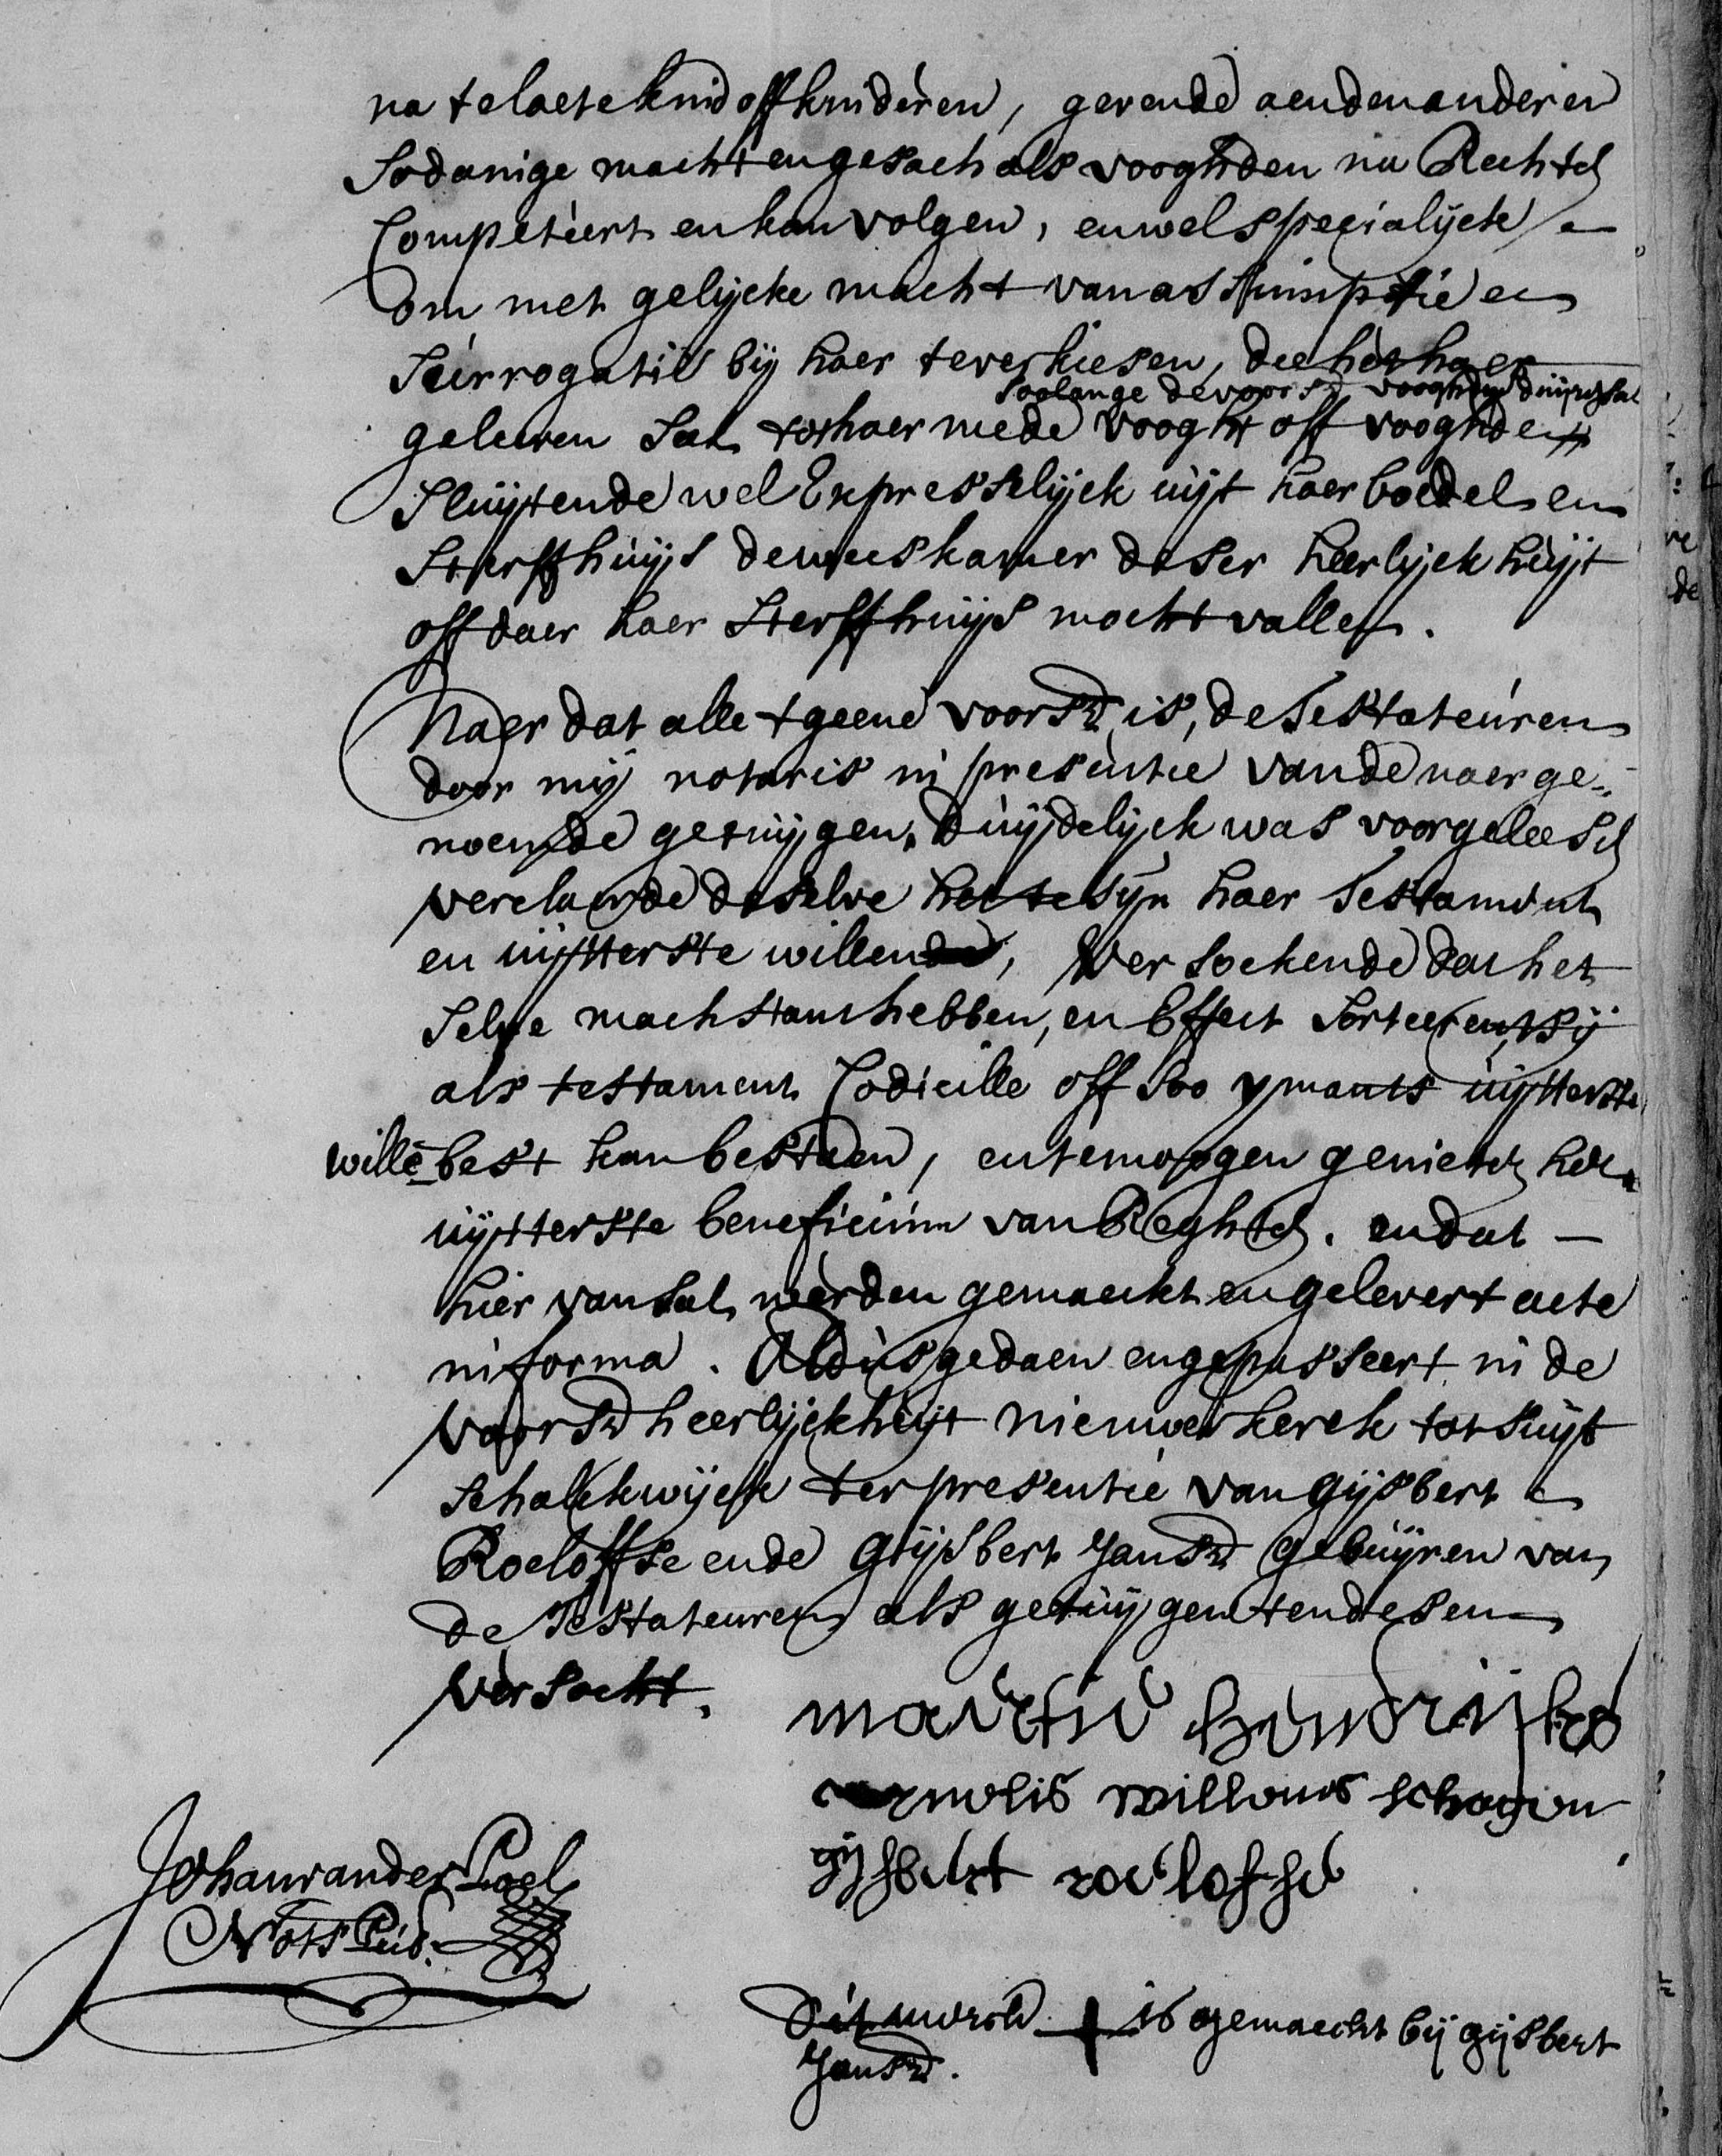 na te laete kind off kinderen, gevende aenden anderen
Sodanige macht en gesach als vooghden na Rechte
Competeert en kan volgen, en wel specialyck
om met gelycke macht van assumptie en
Surrogatie by haer te verkiesen, die het haer
soolange de voorsz vooghdye duijren sal
gelieven Sal tot haer mede vooght off vooghden
Sluytende wel Expresselyck uijt haer boedel en
Sterffhuijs de weeskamer deser heerlyckheijt
off daer haer Sterffhuijs mocht vallen.
Naer dat alle tgeene voorsz is, de Testateuren
door mij notaris in presentie vande naerge-
noemde getuijgen, duijdelijck was voorgeleesen
verclaerde deselve het te sijn haer Testament
en uijtterste willen, Versoekende dat het
Selve mach stant hebben, en Effect Sorteeren, tsij
als testament Codicille off soo ymants uijtterste
wille best kan bestaen, en te moogen genieten het
uijtterste beneficium van Reghte. en dat —
hier van sal werden gemaeckt en gelevert acte
in forma. Aldus gedaen en gepasseert in de
Voorsz heerlyckheijt nieuwerkerck tot Suijt
Schalckwyck ter presentie van Gijsbert
Roeloffse ende Gijsbert Jansz gebuijren van
de Testateuren als getuijgen tendesen
Versocht.
martin hendrijks
cornelis willems schagen
gijsbert roeloffse
Johan vander Poel
Nots Pub.
Dit merck + is gemaeckt bij gijsbert
Jansz.